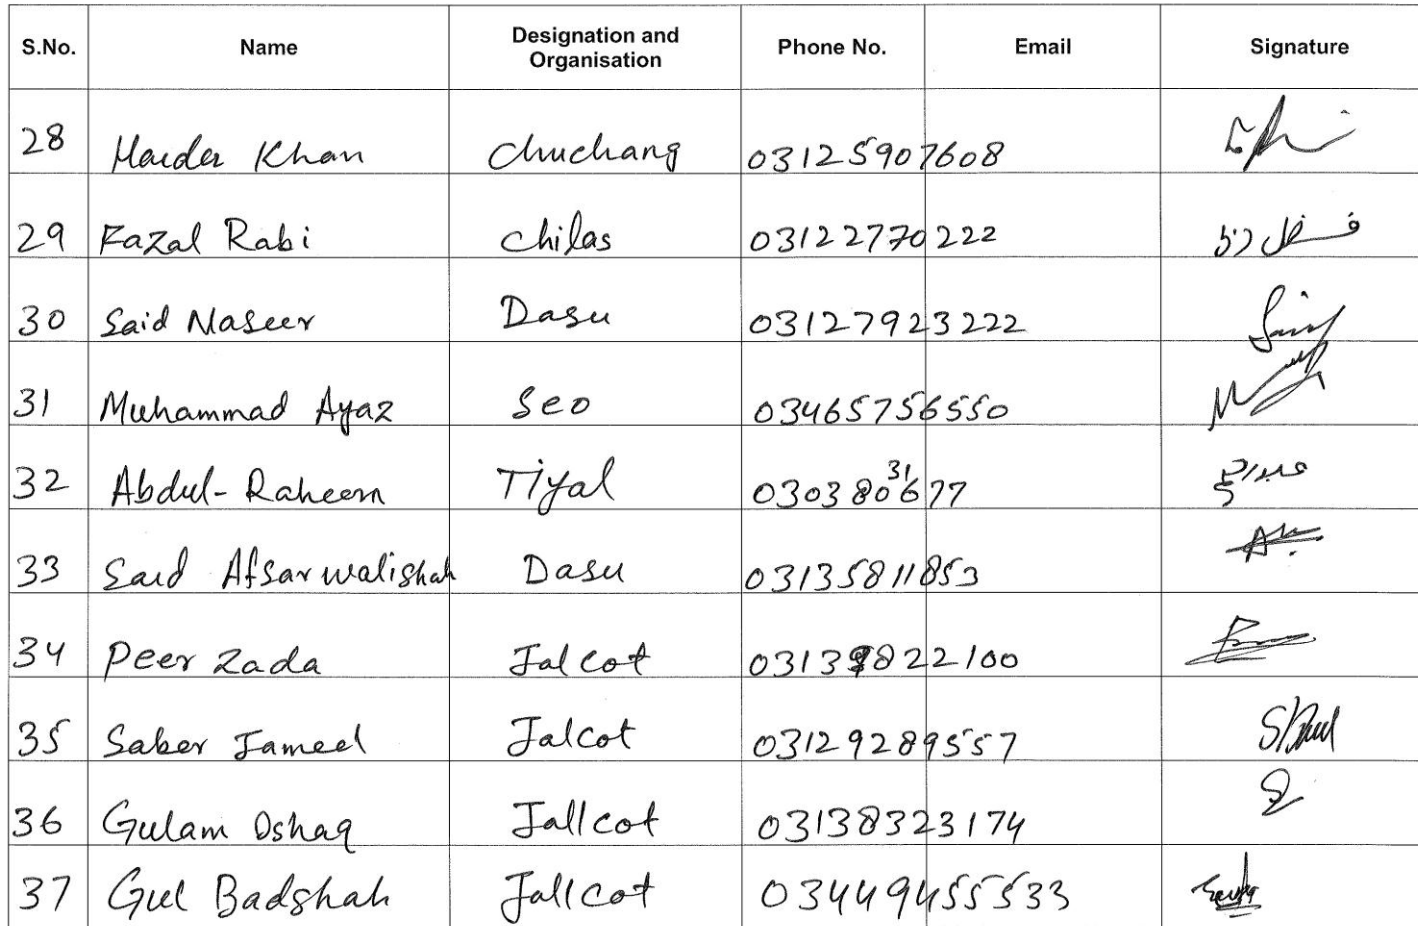 S.No. Name Designation and Organisation Phone No. Email Signature
28 Haider Khan Chuchang 03125907608
29 Fazal Rabi Chilas 03122770222 فضل ربی
30 Said Naseer Dasu 03127923222
31 Muhammad Ayaz Seo 03465756550
32 Abdul-Raheem Tiyal 03038031677
33 Said Afsar walishah Dasu 03135811853
34 Peer Zada Jalcot 822100
35 Saber Jameel Jalcot 03129289557
36 Gulam Oshaq Jallcot 03138323174
37 Gul Badshah Jallcot 03449455533